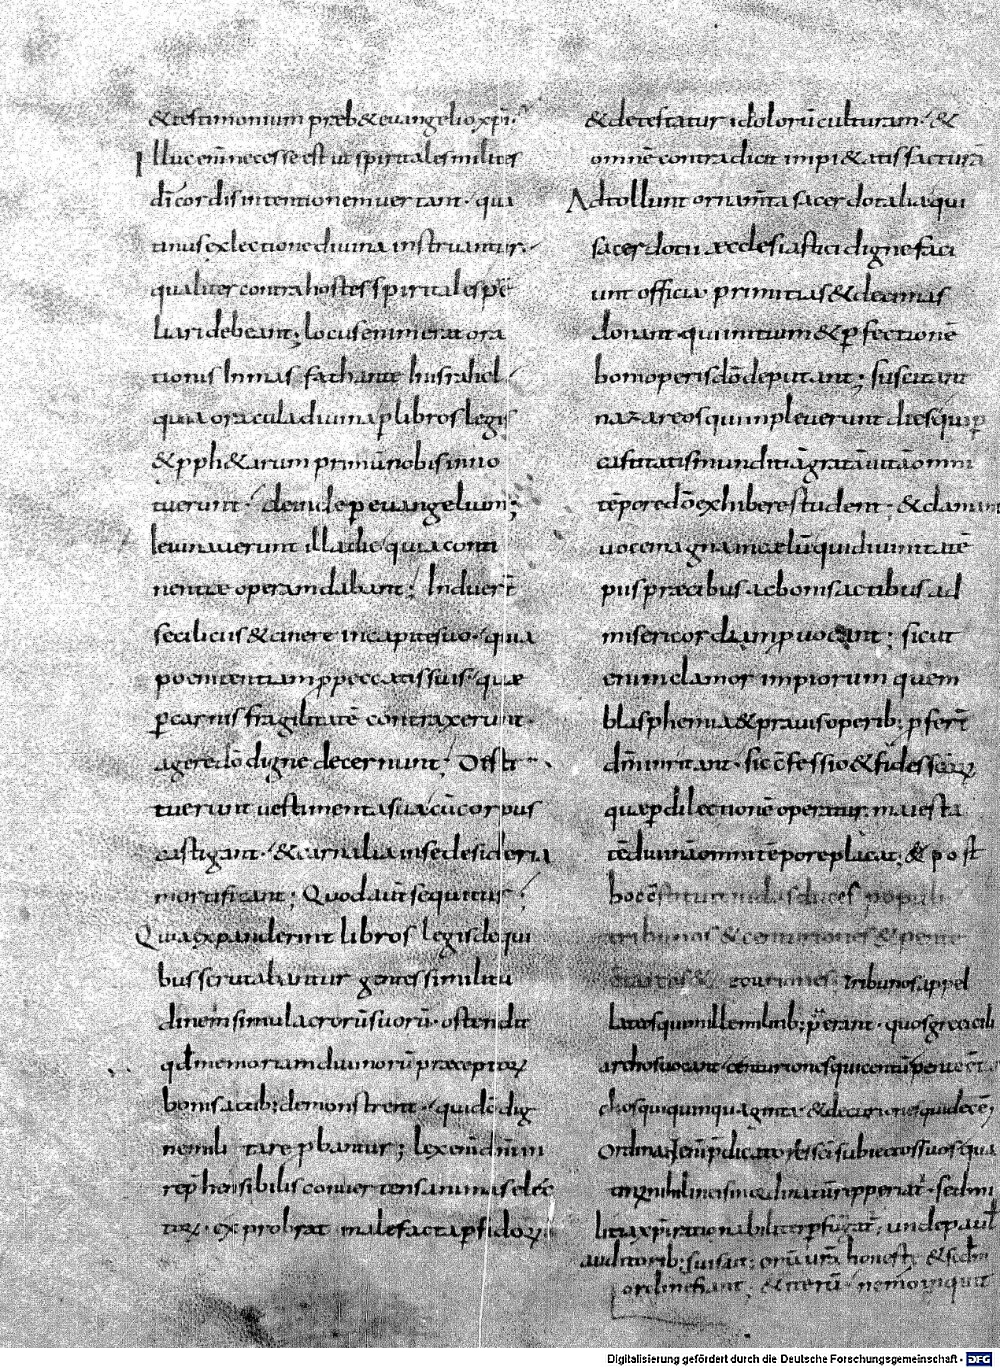 &testimonium preb& euangelio xpi·
Illuc enī necesse est ut spiritales milites
dī cordis intentionem uertant· qua
tinus ex lectione diuina instruantur·
qualiter contra hostes spiritales p̄e
liari debeant; locus enim erat ora
tionis In mas fath ante hisrahel·
quia oracula diuina p̄ libros legis
& pph&arum primū nobis inno
tuerunt· deinde p euangelium;
leuinauerunt illa die quia conti
nentiae operam dabant; Induert̄
se cilicus & cinere in capite suo· quia
poenitentiam p̄ peccatis suis quae
p̄ carnis fragilitatē contraxerunt·
agere dō digne decernunt;
tuerunt uestimenta sua cū corpus
castigant· & carnalia in se desideria
mortificant; Quod aut̄ sequitur;
Quia expanderunt libros legis de qui
bus scrutabantur gentes similitu
dinem simulacrorū suorū· ostendit
qd̄ memoriam diuinorū praeceptoꝝ
bonis actib; demonstrent· qui dō dig
ne mili tare pbantur; lex enī dn̄i in
rep̄hensibilis conuertens animas elec
toꝝ· exprobrat male facta p̄fidoꝝ·
& detestatur idolorū culturam· &
omnē contradicit impi&atis facturā
Adtollunt ornam̄ta sacerdotalia qui
sacerdotii aecclesiastici digne faci
unt officia primitias & decimas
donant· qui initium & p̄fectionē
boni operis dō deputant; suscitant
nazareos qui impleuerunt dies qui p̄
castitatis munditiā gratā uitā omni
tēpore dō exhibere student· & clamant
uoce magna in caelū qui diuinitatē
piis praecibus ac bonis actibus ad
misericordiam puocant; sicut
enim clamor impiorum quem
blasphemia & prauis operib; p̄fert̄
dn̄m irritant· sic c̄fessio & fides scōꝝ
quae p̄ dilectionē operatur· maiesta
tē diuinā omni tēpore placat; & post
hoc c̄stituit iudas duces populi
tribunos & centuriones & pente
& tribunos appel
lat eos qui mille militib; p̄erant· quos greci cili
archos uocant· centuriones qui centū
chos qui quinquaginta· & decuriones qui decē;
subiectos suos
unde paul̄
auditorib; suis ait; om̄ia ur̄a honeste & secd̄m
ordinē fiant; & iterū· nemo inquit